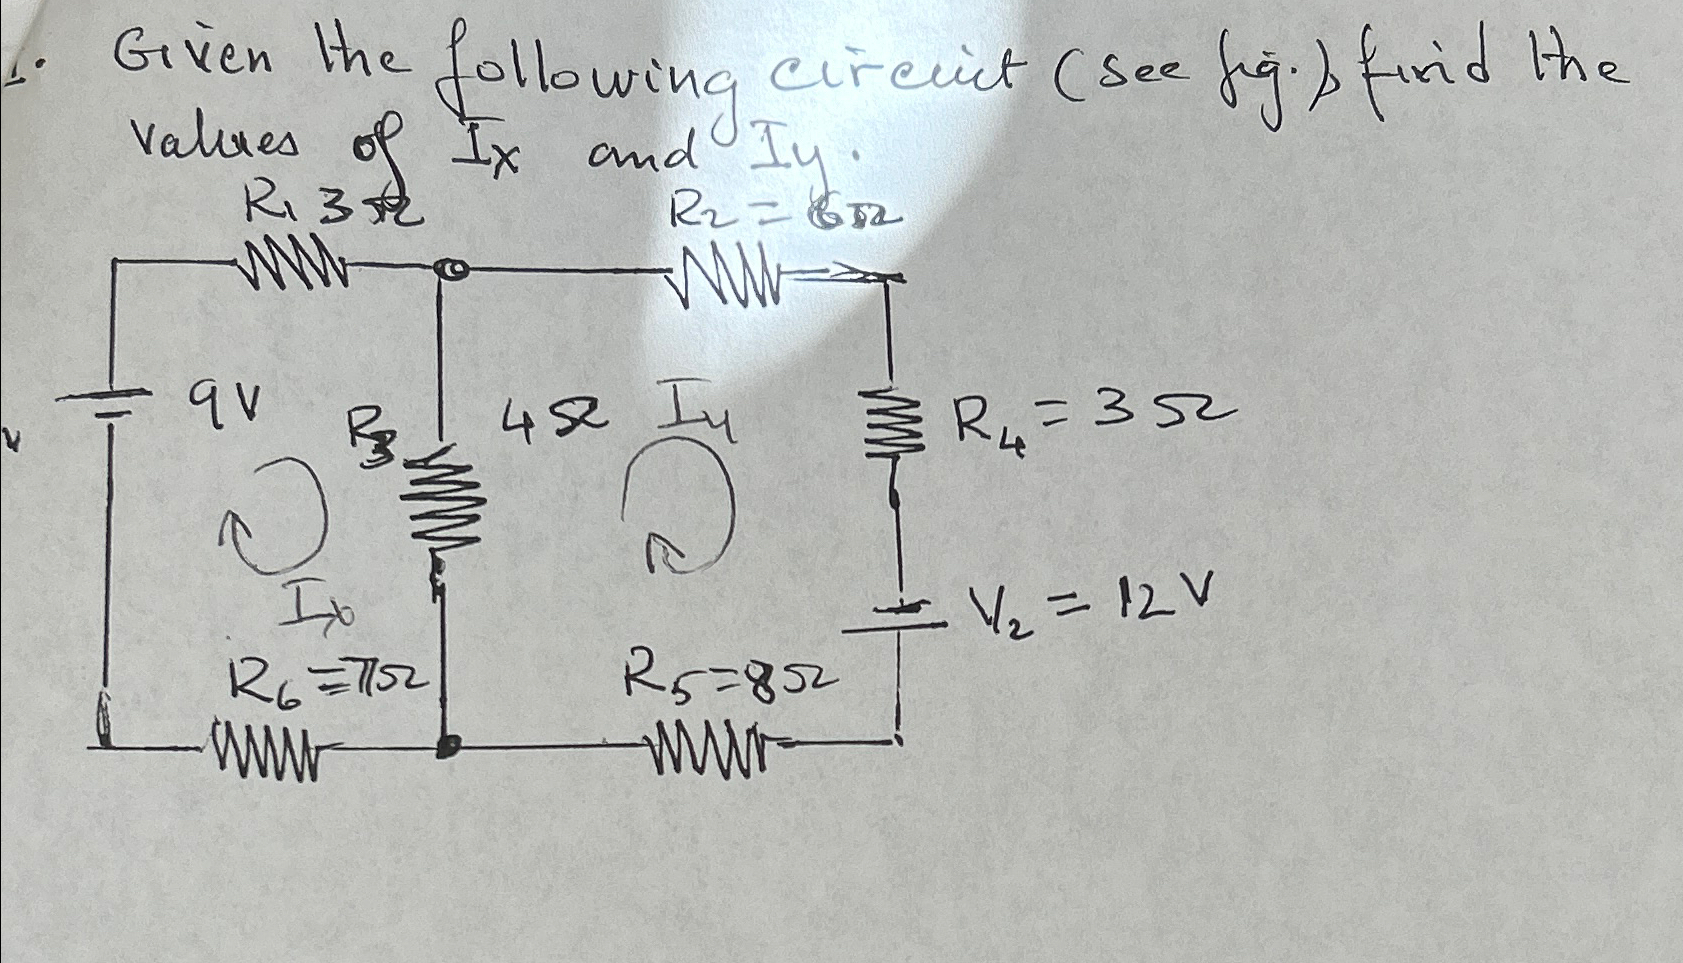 1. Given the following circuit (see fig.), find the
values of Ix and Iy.
R1 3Ω R2 = 6Ω
9V R3 4Ω Iy R4 = 3Ω
Ix V2 = 12V
R6 = 7Ω R5 = 8Ω